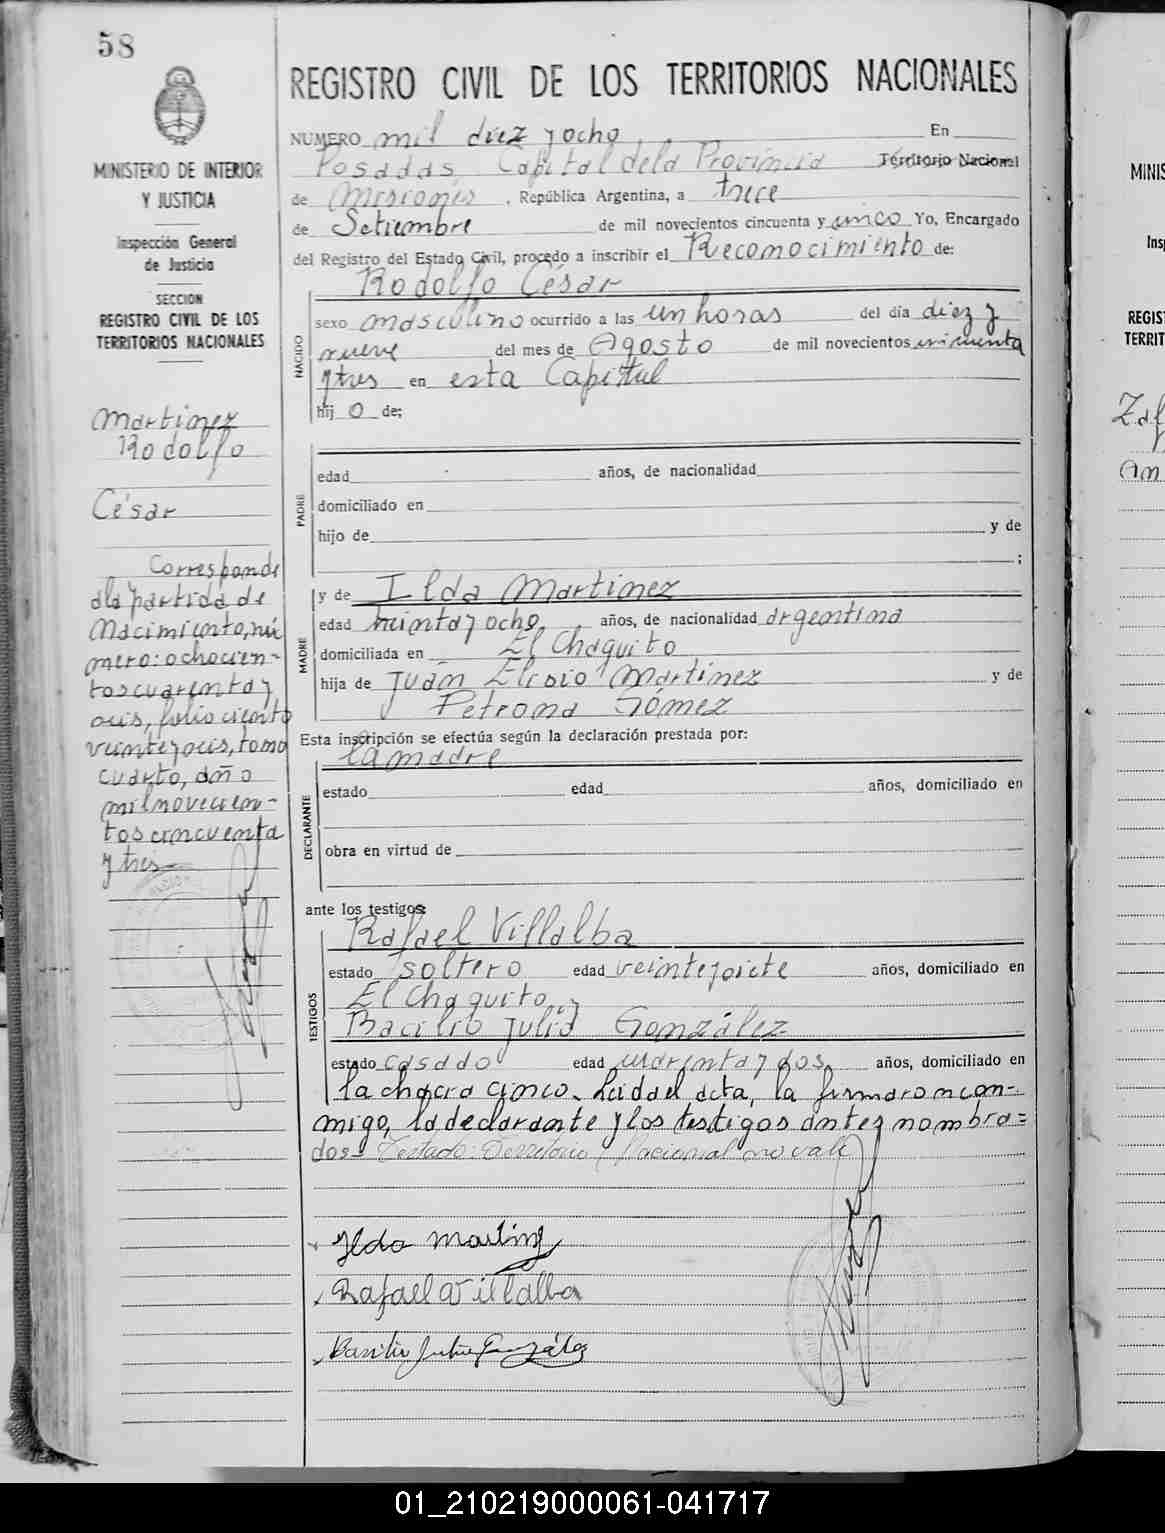 58
REGISTRO CIVIL DE LOS TERRITORIOS NACIONALES
MINISTERIO DE INTERIOR
Y JUSTICIA
Inspección General
de Justicia
SECCION
REGISTRO CIVIL DE LOS
TERRITORIOS NACIONALES
Martinez
Rodolfo
César
Corresponde
a la partida de
Nacimiento, nú
mero: ochocien-
tos cuarenta y
seis, folio ciento
veinte y seis, tomo
cuarto, año
mil novecien-
tos cincuenta
y tres
NUMERO mil diez y ocho En
Posadas, Capital de la Provincia Territorio Nacional
de Misiones, República Argentina, a trece
de Setiembre de mil novecientos cincuenta y cinco Yo, Encargado
del Registro del Estado Civil, procedo a inscribir el Reconocimiento de:
Rodolfo César
NACIDO
sexo masculino ocurrido a las un horas del día diez y
nueve del mes de Agosto de mil novecientos cincuenta
y tres en esta Capital
hij o de;
PADRE
edad años, de nacionalidad
domiciliado en
hijo de y de
;
MADRE
y de Ilda Martinez
edad treinta y ocho años, de nacionalidad argentina
domiciliada en El Chaquito
hija de Juan Elisio Martinez y de
Petrona Gómez
Esta inscripción se efectúa según la declaración prestada por:
la madre
DECLARANTE
estado edad años, domiciliado en
obra en virtud de
ante los testigos:
TESTIGOS
Rafael Villalba
estado soltero edad veinte y siete años, domiciliado en
El Chaquito, y
Bacilio Julio González
estado casado edad cuarenta y dos años, domiciliado en
la chacra cinco. Leida el acta, la firmaron con-
migo, la declarante y los testigos antes nombra=
dos= Testado: Territorio Nacional no vale
Ilda Martinez
Rafael Villalba
Basilio Julio González
MINIS
Insp
REGIS
TERRIT
01_210219000061-041717